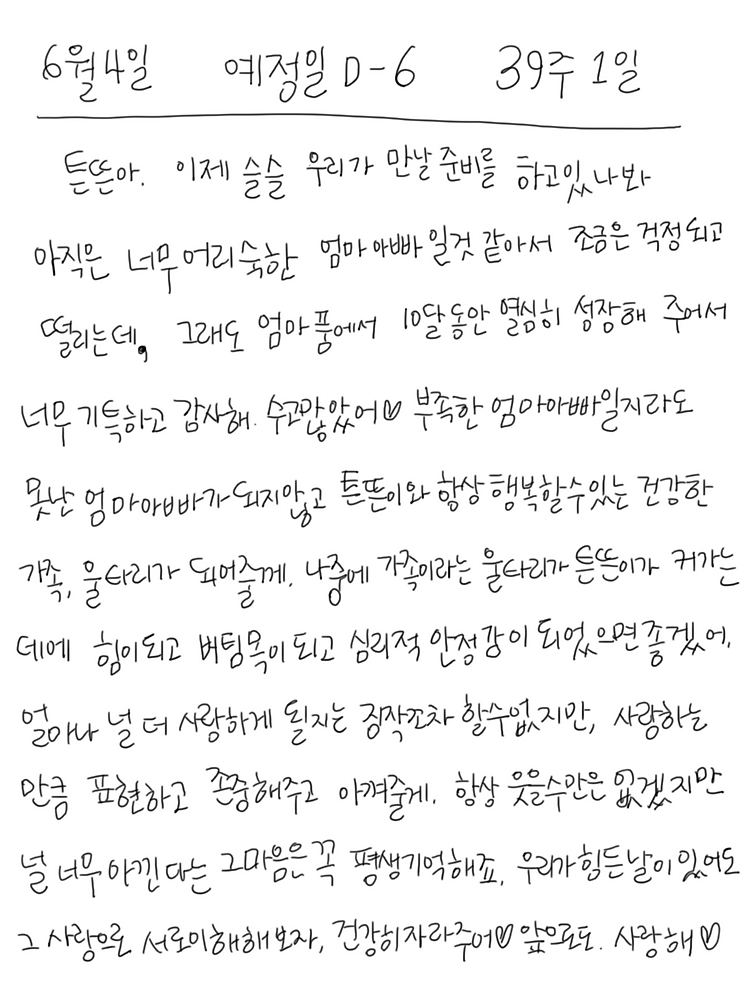 6월4일 예정일 D-6 39주 1일
튼뜬아. 이제 슬슬 우리가 만날 준비를 하고있나봐
아직은 너무 어리숙한 엄마아빠 일것 같아서 조금은 걱정되고
떨리는데, 그래도 엄마 품에서 10달동안 열심히 성장해 주어서
너무 기특하고 감사해. 수고많았어♡ 부족한 엄마아빠일지라도
못난 엄마아빠가 되지않고 튼뜬이와 항상 행복할수있는 건강한
가족, 울타리가 되어줄께. 나중에 가족이라는 울타리가 튼뜬이가 커가는
데에 힘이되고 버팀목이 되고 심리적 안정감이 되었으면 좋겠어.
얼마나 널 더 사랑하게 될지는 짐작조차 할수없지만, 사랑하는
만큼 표현하고 존중해주고 아껴줄게. 항상 웃을수만은 없겠지만
널 너무 아낀다는 그마음은 꼭 평생기억해죠. 우리가 힘든날이 있어도
그 사랑으로 서로이해해보자, 건강히자라주어♡ 앞으로도. 사랑해♡